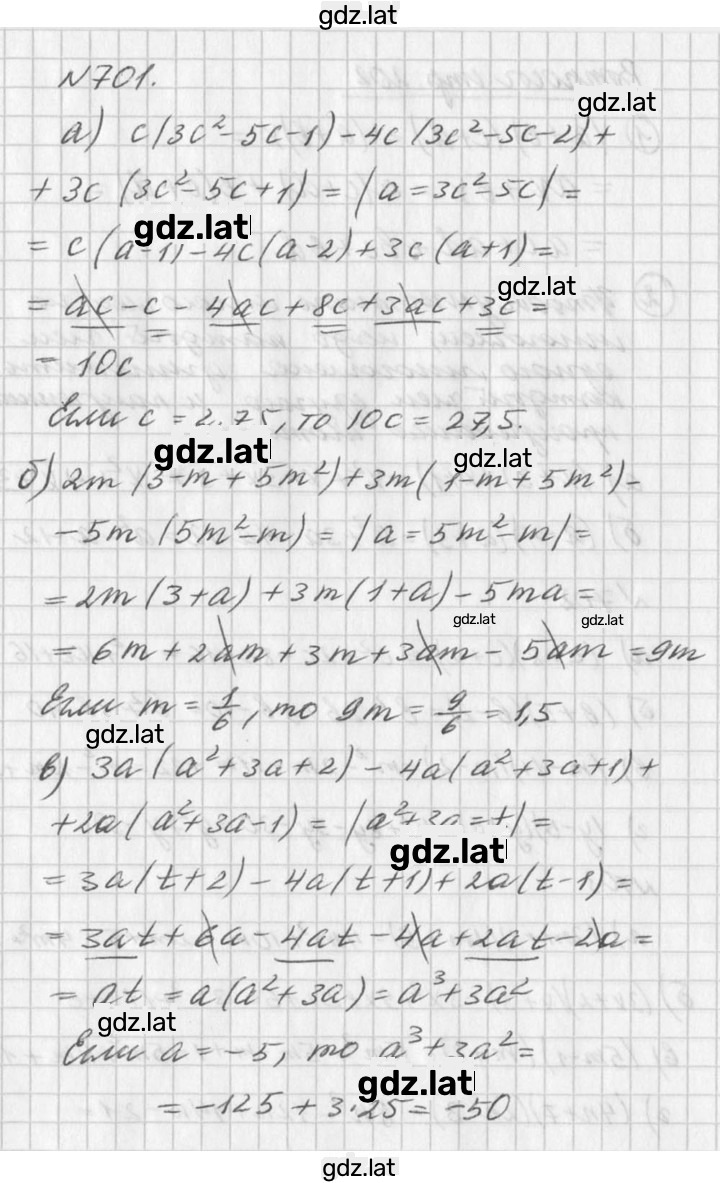 gdz.lat
№701.
gdz.lat
а) c(3c²-5c-1)-4c(3c²-5c-2)+
+3c(3c²-5c+1)=|a=3c²-5c|=
gdz.lat
=c(a-1)-4c(a-2)+3c(a+1)=
gdz.lat
=ac-c-4ac+8c+3ac+3c=
=10c
Если c=2.75, то 10c=27,5.
gdz.lat
gdz.lat
б) 2m(3-m+5m²)+3m(1-m+5m²)-
-5m(5m²-m)=|a=5m²-m|=
=2m(3+a)+3m(1+a)-5ma=
gdz.lat
gdz.lat
=6m+2am+3m+3am-5am=9m
Если m=1/6, то 9m=9/6=1,5
gdz.lat
в) 3a(a²+3a+2)-4a(a²+3a+1)+
+2a(a²+3a-1)=|a²+3a=t|=
gdz.lat
=3a(t+2)-4a(t+1)+2a(t-1)=
=3at+6a-4at-4a+2at-2a=
=at=a(a²+3a)=a³+3a²
gdz.lat
Если a=-5, то a³+3a²=
gdz.lat
=-125+3·25=-50
gdz.lat